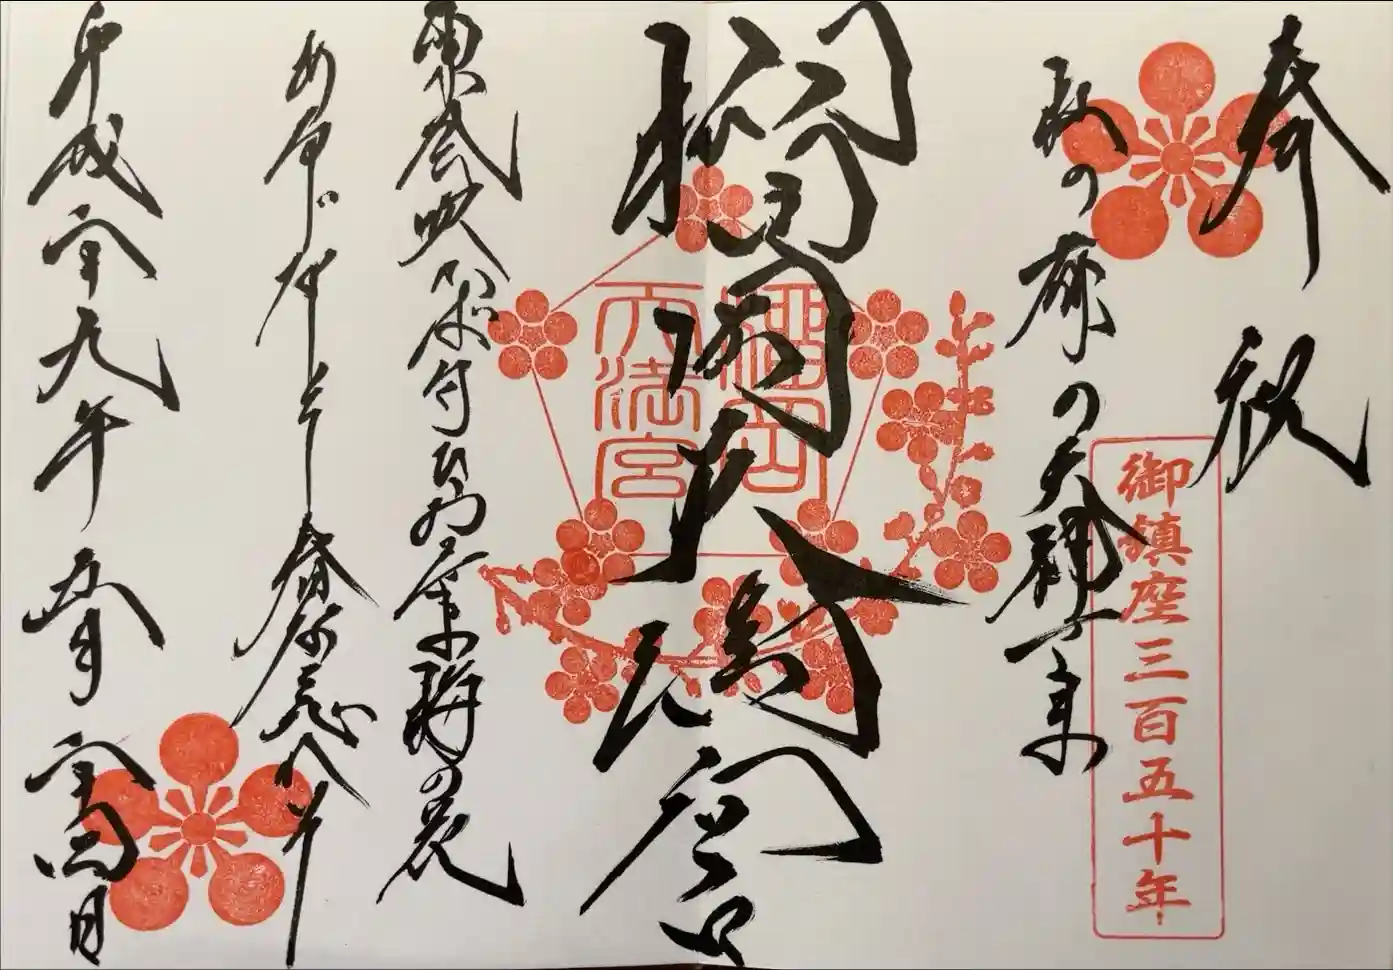 奉祝
御鎮座三百五十年
杜の都の天神さま
榴岡天満宮
榴岡
天満宮
東風吹かば匂ひおこせよ梅の花
あるじなしとて春な忘れそ
平成二十九年五月二十四日